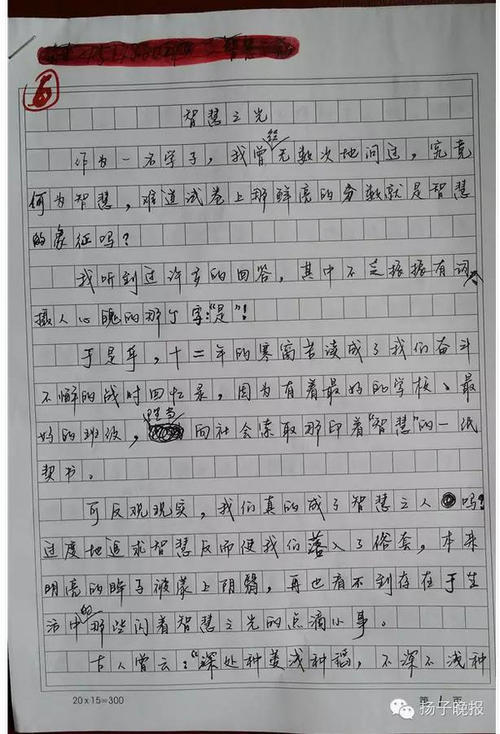 6
智慧之光
作为一名学子，我曾经无数次地问过，究竟
何为智慧，难道试卷上那鲜亮的分数就是智慧
的象征吗？
我听到过许多的回答，其中不乏振振有词、
摄人心魄的那个字："是"！
于是乎，十二年的寒窗苦读成了我们奋斗
不懈的战时回忆录，因为有着最好的学校、最
好的班级，理当向社会索取那印着"智慧"的一纸
契书。
可反观现实，我们真的成了智慧之人吗？
过度地追求智慧反而使我们落入了俗套，本来
明亮的眸子被蒙上阴翳，再也看不到存在于生
活中的那些闪着智慧之光的点滴小事。
古人曾云："深处种菱浅种稻，不深不浅种
20×15=300
第 1 页
扬子晚报